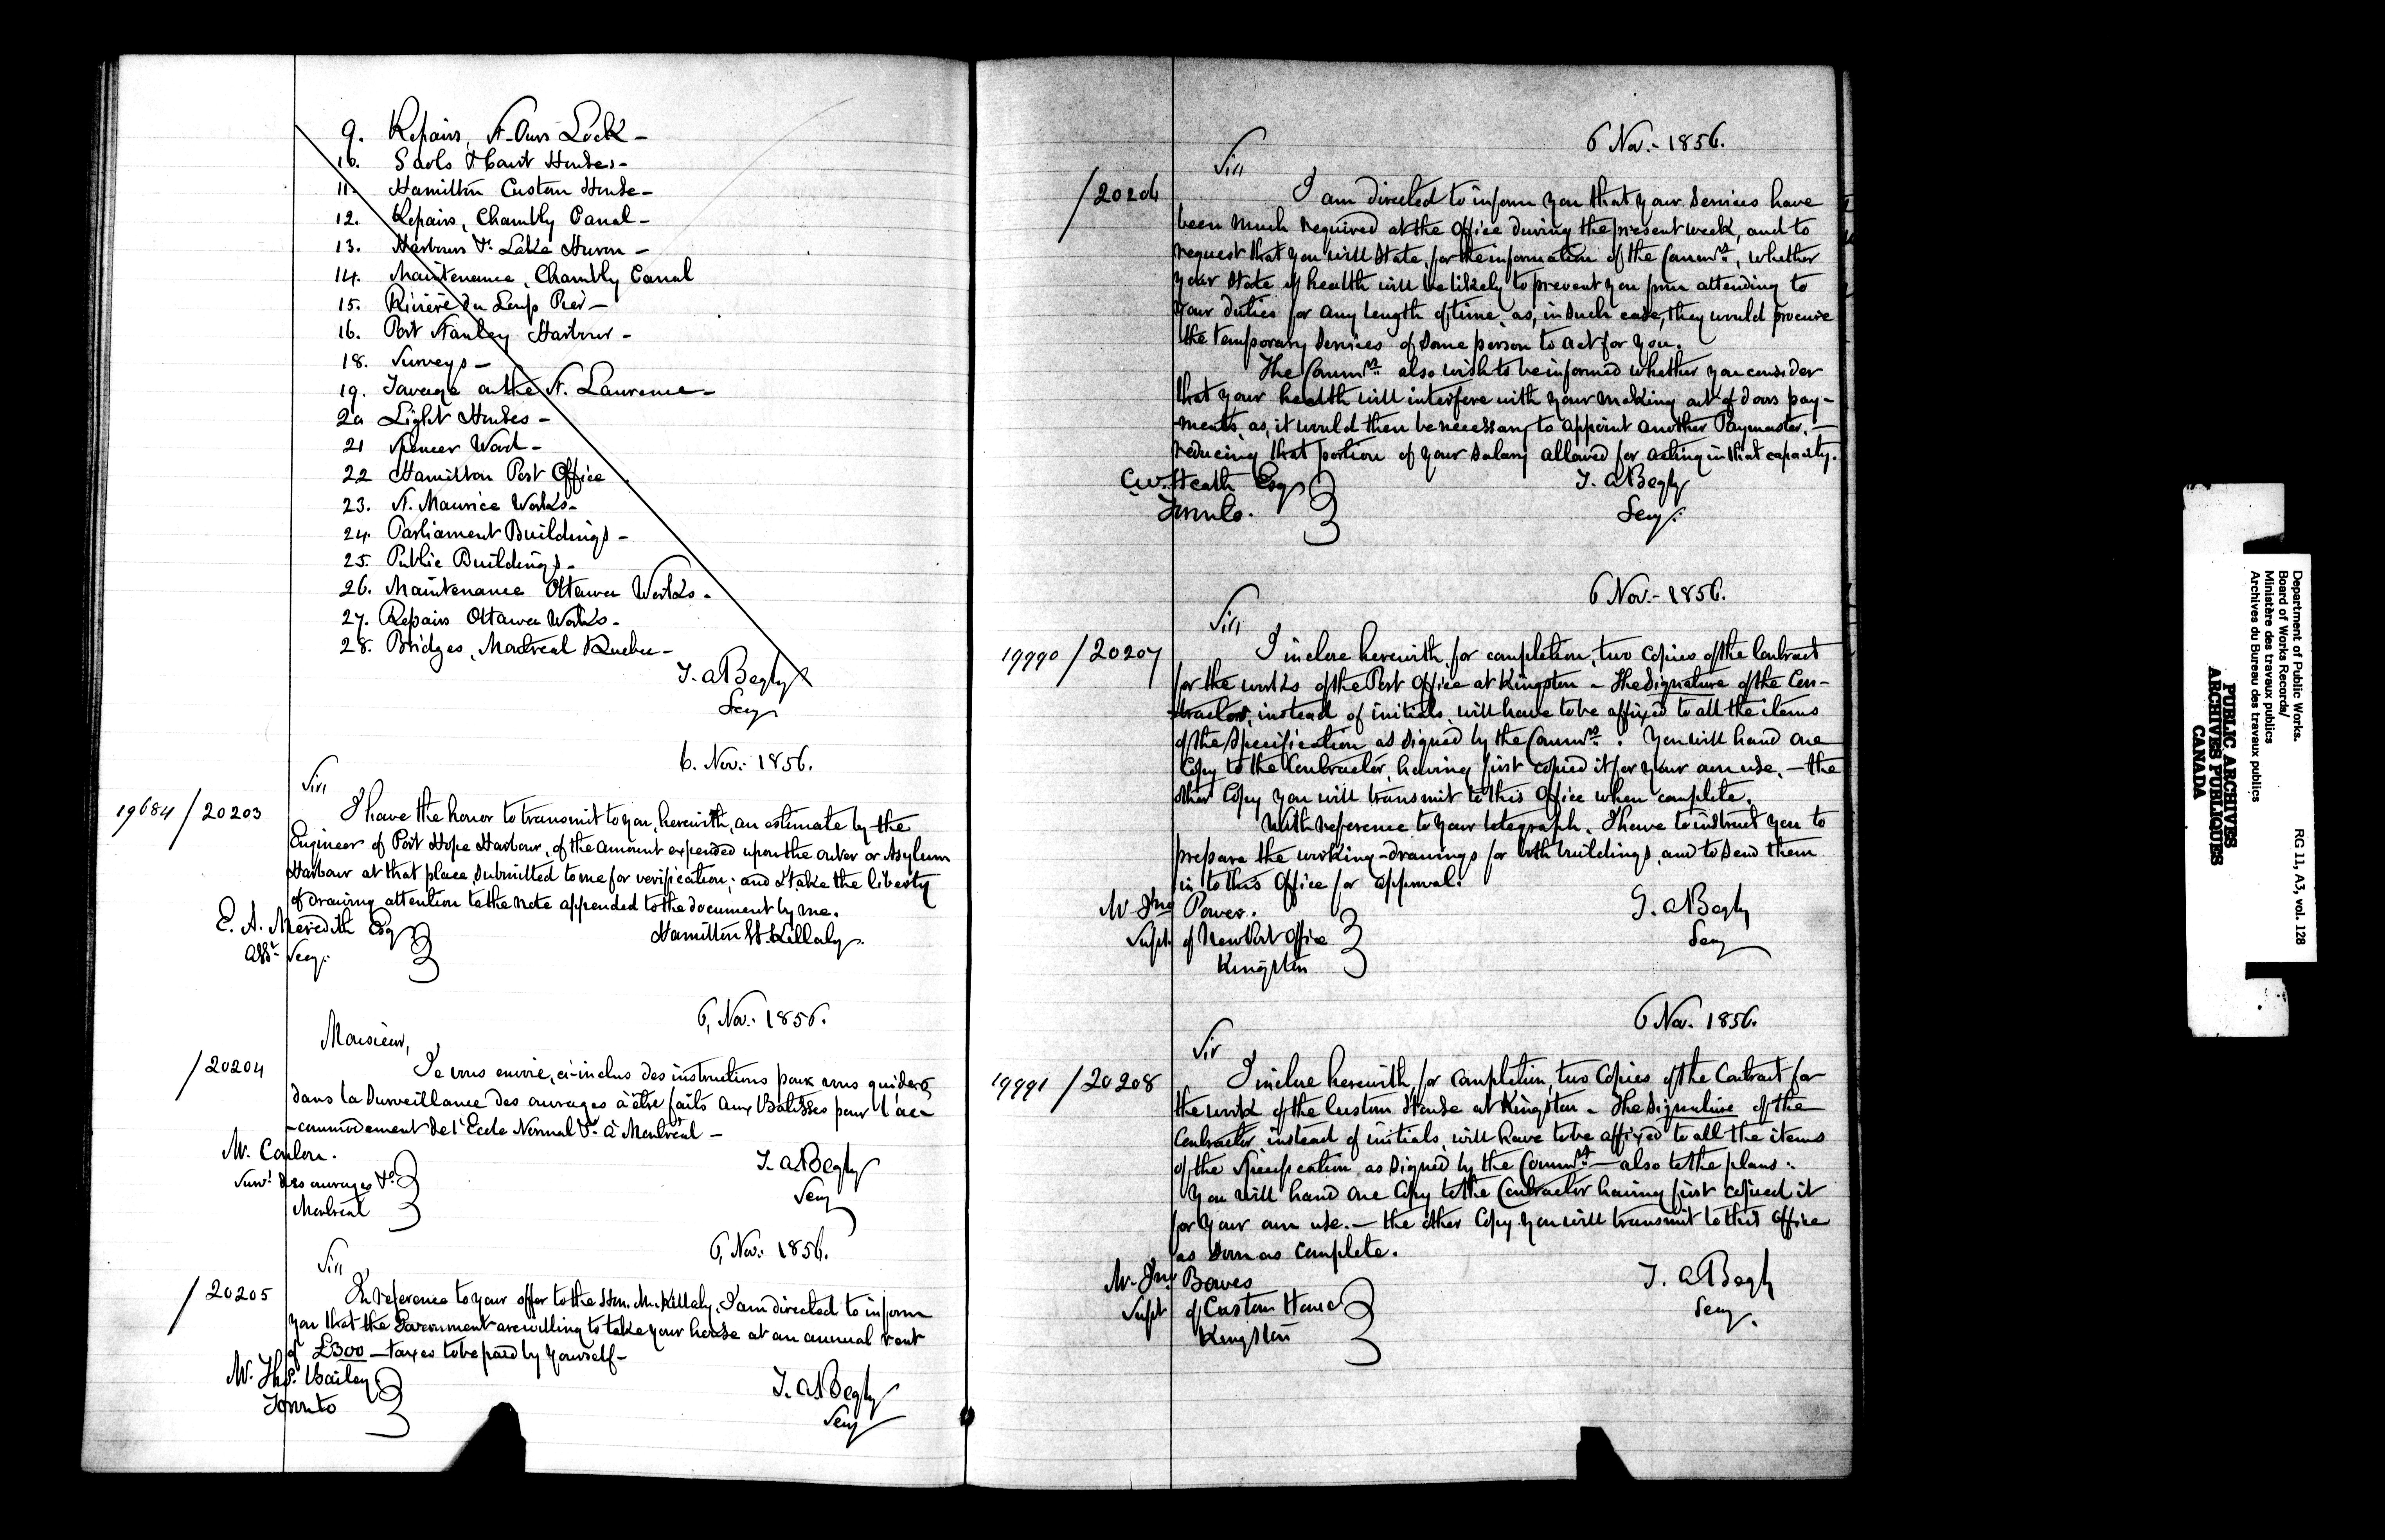 9. Repairs, St. Ours Lock -
10. Gaols & Court Houses -
11. Hamilton Custom House -
12. Repairs, Chambly Canal -
13. Harbours &c Lake Huron -
14. Maintenance, Chambly Canal
15. Rivière du Loup Pier -
16. Port Stanley Harbour -
18. Surveys -
19. Towage on the St. Lawrence -
20 Light Houses -
21 Spencer Wood -
22 Hamilton Post Office
23. St. Maurice Works -
24. Parliament Buildings -
25. Public Buildings -
26. Maintenance Ottawa Works -
27. Repairs Ottawa Works -
28. Bridges, Montreal & Quebec -
T. A. Begly
Secy
6. Nov: 1856.
Sir,
19684 / 20203
I have the honor to transmit to you, herewith, an estimate by the
Engineer of Port Hope Harbour, of the amount expended upon the outer or Asylum
Harbour at that place, submitted to me for verification; and I take the liberty
of drawing attention to the note appended to the document by me.
E. A. Meredith Esq
Asst Secy.
Hamilton H. Killaly.
6, Nov: 1856.
Monsieur,
/ 20204
Je vous envoie, ci-inclus des instructions pour vous guider
dans la surveillance des ouvrages à être faits aux Batisses pour l'ac-
-commodement de l'Ecole Normal &c à Montréal -
M. Coulon.
Surv! des ouvrages &c
Montreal
T. A. Begly
Secy
6, Nov: 1856.
Sir,
/ 20205
In reference to your offer to the Hon. Mr Killaly, I am directed to inform
you that the Government are willing to take your house at an annual rent
of £300 - taxes to be paid by yourself -
Mr. Thos. Bailey
Toronto
T. A. Begly
Secy
6 Nov. - 1856.
Sir,
/ 20206
I am directed to inform you that your services have
been much required at the Office during the present week, and to
request that you will state, for the information of the Commrs, whether
your state of health will be likely to prevent you from attending to
your duties for any length of time, as, in such case, they would procure
the temporary services of some person to act for you.
The Commrs also wish to be informed whether you consider
that your health will interfere with your making out of doors pay-
-ments, as, it would then be necessary to appoint another Paymaster, -
reducing that portion of your salary allowed for acting in that capacity.
C.W. Heath Esq
Toronto.
T. A. Begly
Secy.
6 Nov. - 1856.
Sir,
19990 / 20207
I inclose herewith, for completion, two copies of the Contract
for the works of the Post Office at Kingston - The signature of the Con-
tractor, instead of initials, will have to be affixed to all the items
of the specification as signed by the Commrs. You will hand one
Copy to the Contractor, having first copied it for your own use, - the
other Copy you will transmit to this Office when complete.
With reference to your telegraph, I have to instruct you to
prepare the working-drawings for both buildings, and to send them
in to this Office for approval.
Mr Jno Power.
Supt. of New Post Office
Kingston
T. A. Begly
Secy
6 Nov. 1856.
Sir
19991 / 20208
I inclose herewith, for completion, two Copies of the Contract for
the work of the Custom House at Kingston - The signature of the
Contractor, instead of initials, will have to be affixed to all the items
of the specification, as signed by the Commrs - also to the plans.
You will hand one Copy to the Contractor having first copied it
for your own use. - the other Copy you will transmit to this Office
as soon as complete.
Mr Jno Bowes
Supt of Custom House
Kingston
T. A. Begly
Secy.
Department of Public Works.
Board of Works Records/
Ministère des travaux publics
Archives du Bureau des travaux publics
RG 11, A3, vol. 128
PUBLIC ARCHIVES
ARCHIVES PUBLIQUES
CANADA